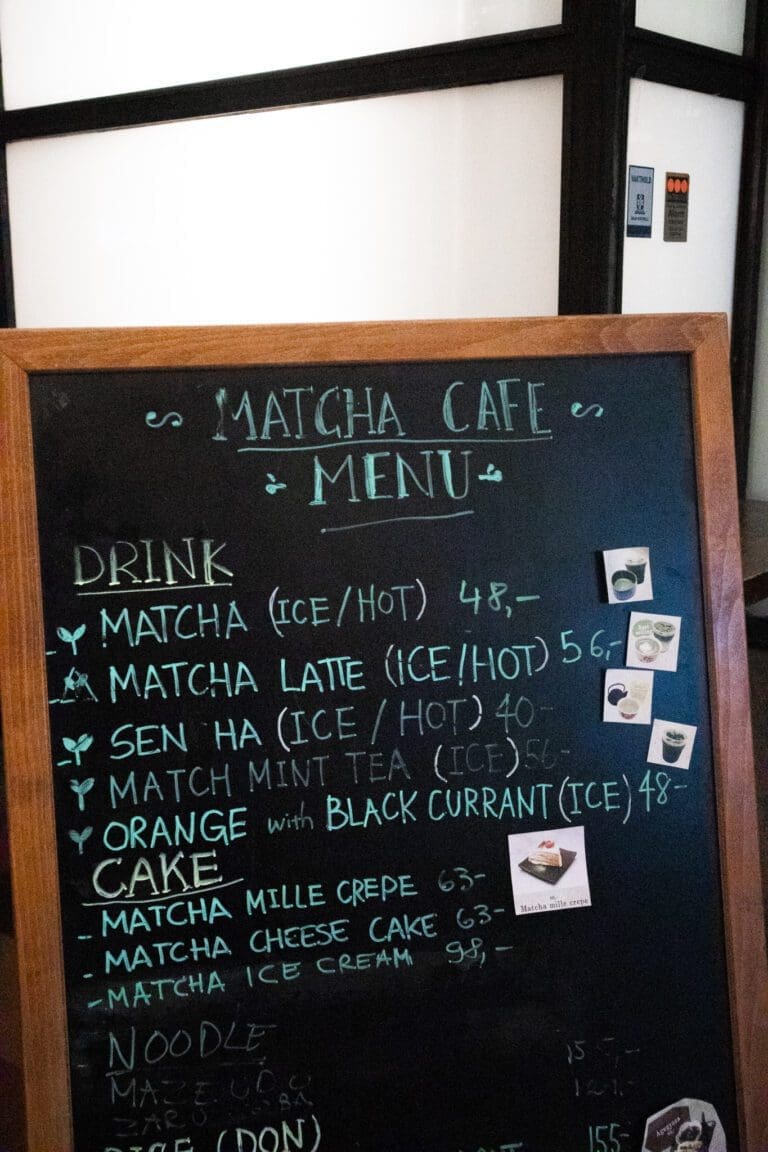 MATCHA CAFE
MENU
DRINK
MATCHA (ICE/HOT) 48,-
MATCHA LATTE (ICE/HOT) 56,-
SEN HA (ICE/HOT) 40-
MATCH MINT TEA (ICE) 56-
ORANGE with BLACK CURRANT (ICE) 48-
CAKE
- MATCHA MILLE CREPE 63-
Matcha mille crepe
- MATCHA CHEESE CAKE 63-
- MATCHA ICE CREAM 98,-
NOODLE
(DON) 155-